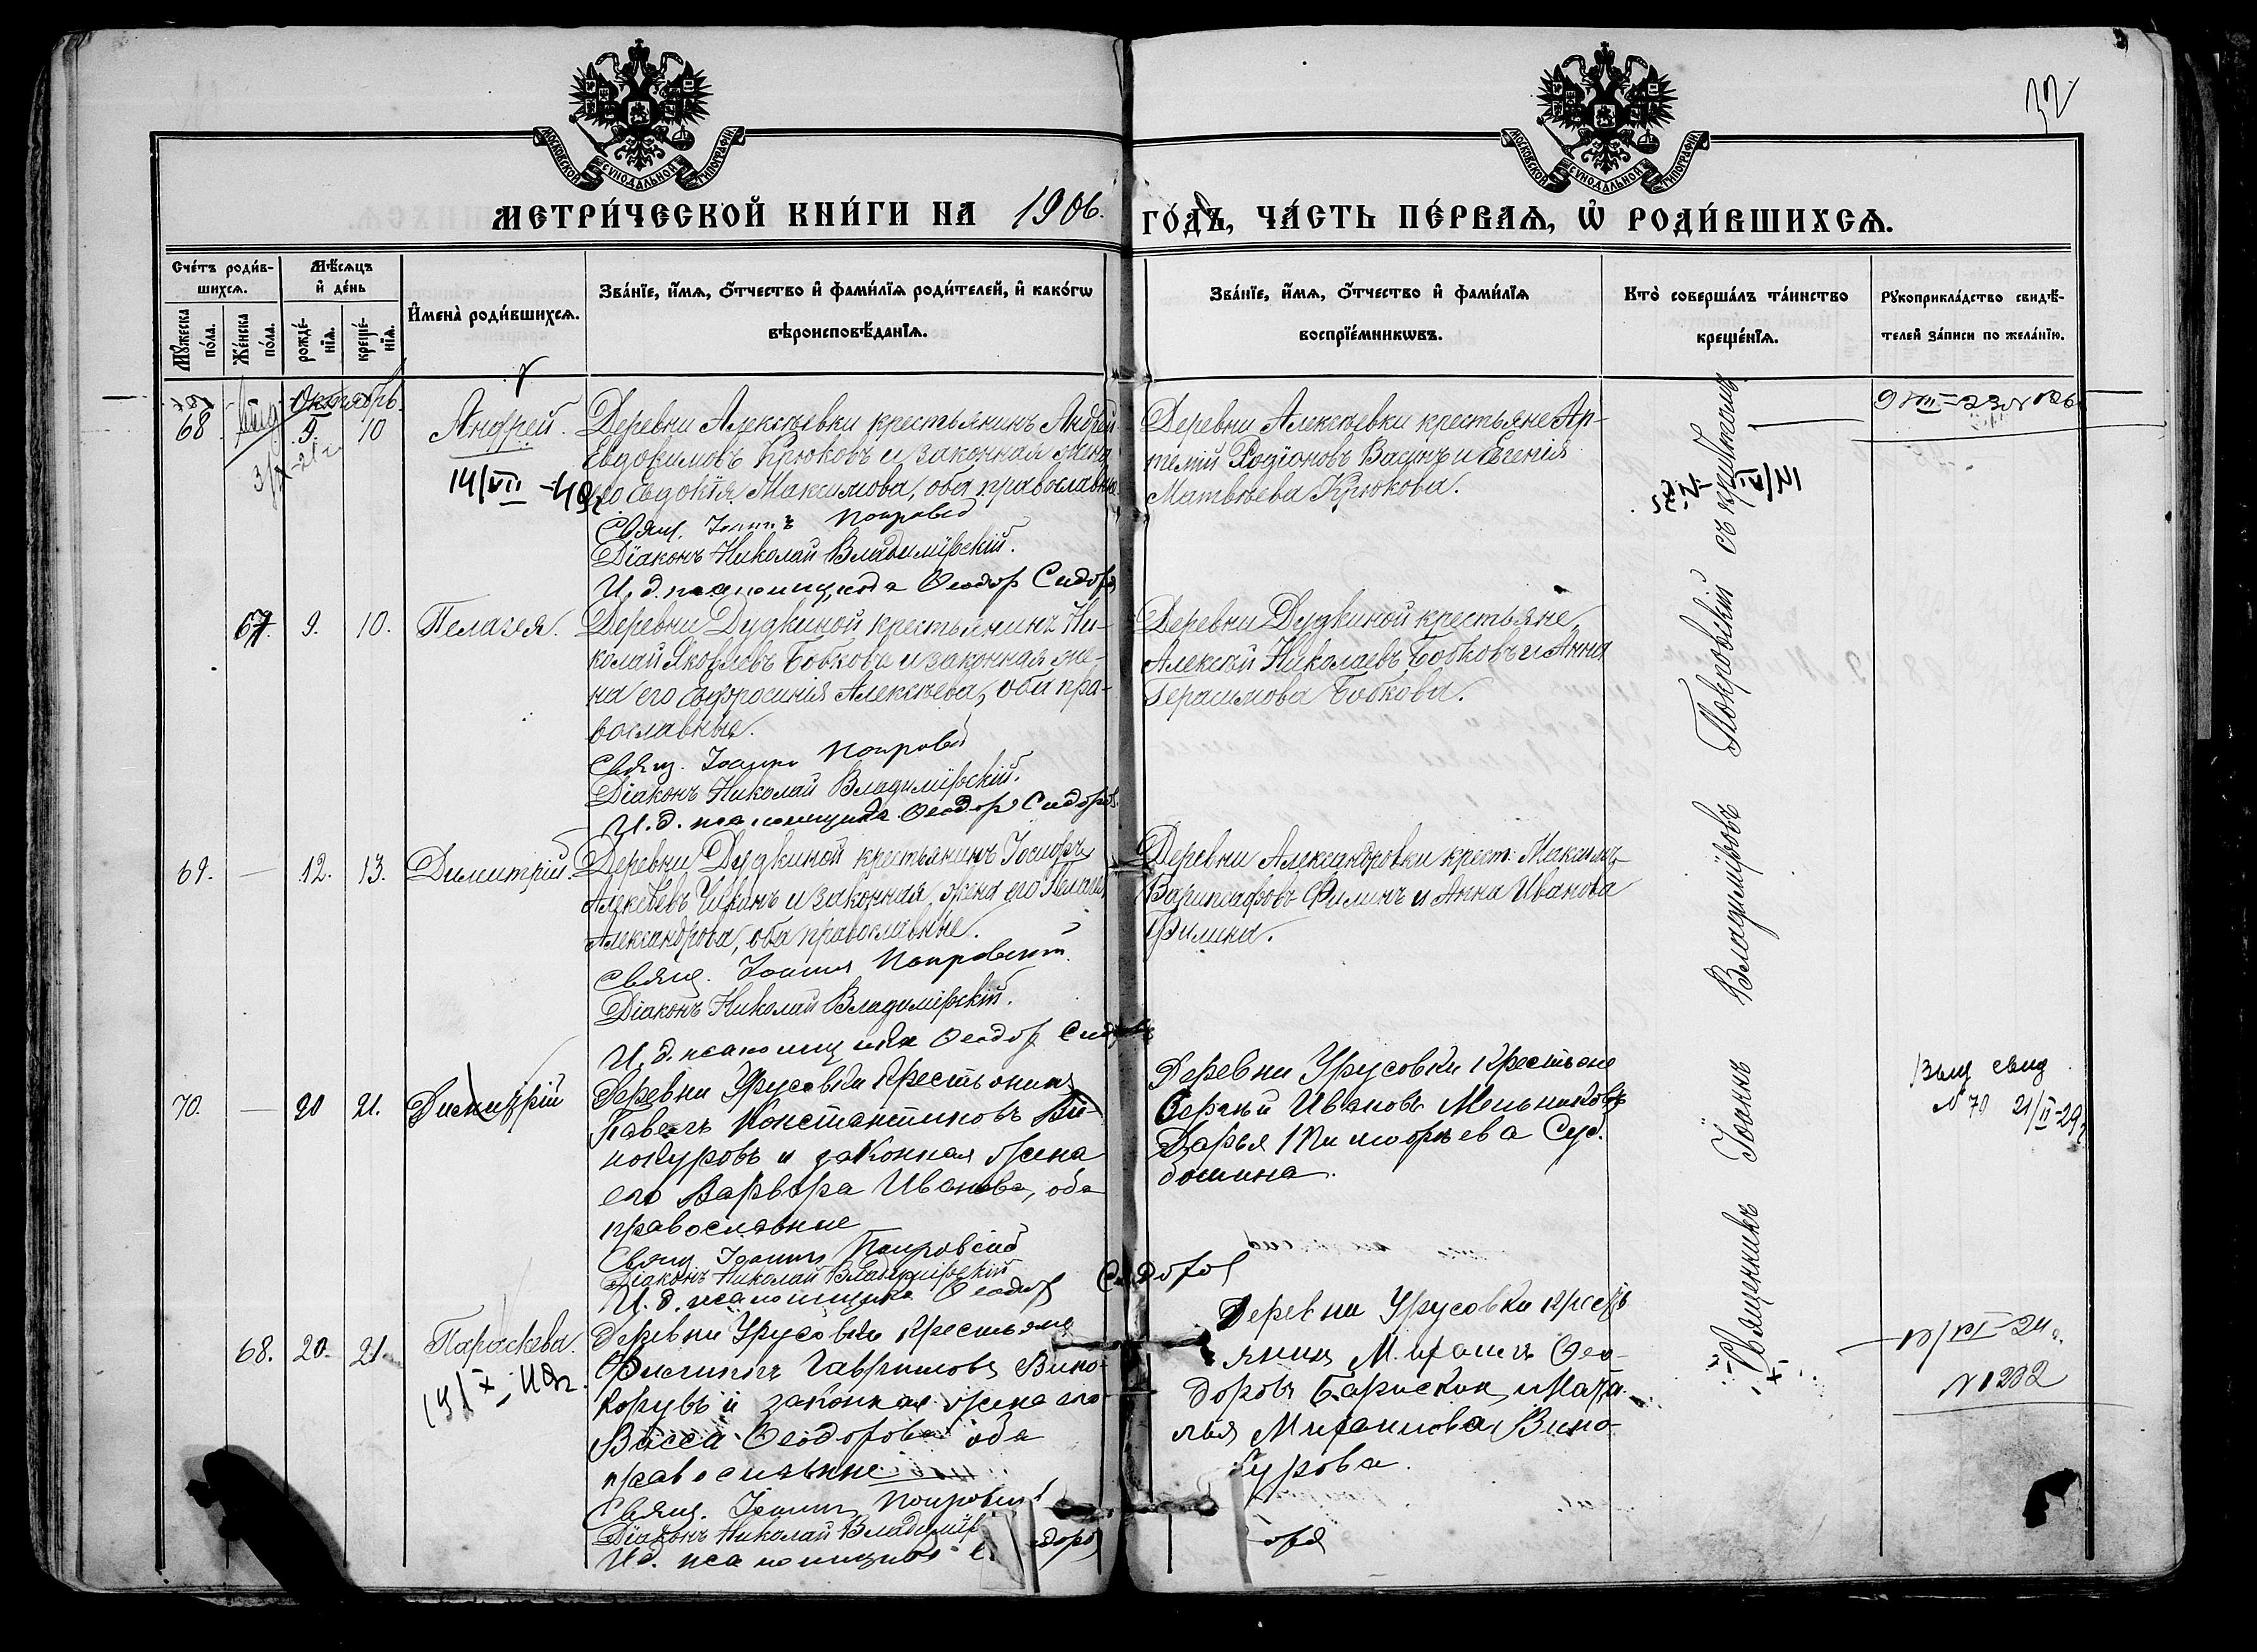 32
МОСКОВСКОЙ СѴНОДАЛЬНОЙ ТИПОГРАФІИ
МОСКОВСКОЙ СѴНОДАЛЬНОЙ ТИПОГРАФІИ
МЕТРИ́ЧЕСКОЙ КНИ́ГИ НА 1906.
ГО́ДЪ, ЧА́СТЬ ПЕ́РВАѦ, Ѡ҆ РОДИ́ВШИХСѦ.
Сче́тъ роди́в-
шихсѧ.
Мꙋ́жеска по́ла.
Же́нска по́ла.
Мѣ́сѧцъ
и҆ де́нь
рожде́-
нїѧ.
креще́-
нїѧ.
И҆мена̀ роди́вшихсѧ.
Зва́нїе, и҆́мѧ, ѻ҆́тчество и҆ фами́лїѧ роди́телей, и҆ како́гѡ
вѣроисповѣ́данїѧ.
Зва́нїе, и҆́мѧ, ѻ҆́тчество и҆ фами́лїѧ
воспрїе́мникѡвъ.
Кто̀ соверша́лъ та́инство
креще́нїѧ.
Рꙋкоприкла́дство свидѣ́-
телей за́писи по жела́нїю.
Октябрь.
68
9.
10
Андрей.
14/VII-40г
Деревни Алексѣевки крестьянинъ Андрей
Евдокимовъ Крюковъ и законная жена
его Евдокія Максимова, оба православные
Свящ. Іоаннъ Покровскій
Діаконъ Николай Владимірскій.
И. д. псаломщика Ѳеодоръ Сидоровъ
Деревни Алексѣевки крестьяне Ар-
темій Родіоновъ Васинъ и Евгенія
Матвѣева Крюкова.
67.
9.
10.
Пелагея.
Деревни Дудкиной крестьянинъ Ни-
колай Яковлевъ Бобковъ и законная же-
на его Евфросинія Алексѣева, оба пра-
вославные.
Свящ. Іоаннъ Покровскій
Діаконъ Николай Владимірскій.
И. д. псаломщика Ѳеодоръ Сидоровъ
Деревни Дудкиной крестьяне,
Алексѣй Николаевъ Бобковъ и Анна
Герасимова Бобкова.
69.
—
12.
13.
Димитрій.
Деревни Дудкиной крестьянинъ Іосифъ
Алексѣевъ Чиканъ и законная жена его Пелагія
Александрова, оба православные.
Свящ. Іоаннъ Покровскій
Діаконъ Николай Владимірскій.
И. д. псаломщика Ѳеодоръ Сидоровъ
Деревни Александровки крест. Максимъ
Филинъ и Анна Иванова
Филина.
70.
—
20
21.
Димитрій
Деревни Урусовки крестьянинъ
Павелъ Константиновъ Ви-
нокуровъ и законная жена
его Варвара Иванова, оба
православные
Свящ. Іоаннъ Покровскій
Діаконъ Николай Владимірскій
И. д. псаломщика Ѳеодоръ Сидоровъ
Деревни Урусовки крестьяне
Сергѣй Ивановъ Мельниковъ
Дарья Тимофѣева Суб-
ботина.
выд свид
№ 70 21/II-29г
68.
20.
21.
Параскева.
19/X-40г.
Деревни Урусовки крестьяне
Филиппъ Гавриловъ Вино-
коровъ и законная жена его
Васса Ѳеодорова оба
православные
Свящ. Іоаннъ Покровскій
Діаконъ Николай Владимір
И. д. псаломщика
Деревни Урусовки кресть
янинъ Михаилъ Ѳео-
доровъ Барискин и Ната-
лья Михаилова Вино-
курова.
№ 1202
Священникъ Іоаннъ Владиміровъ Покровскій съ причтомъ